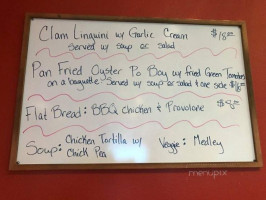 Clam Linguini w/ Garlic Cream
Served w/ soup or salad $18.00
Pan Fried Oyster Po Boy w/ fried Green Tomatoes
on a baguette Served w/ soup or salad & one side
Flat Bread: BBQ Chicken & Provolone $8.00
Soup: Chicken Tortilla w/ Chick Pea
Veggie: Medley
menupix